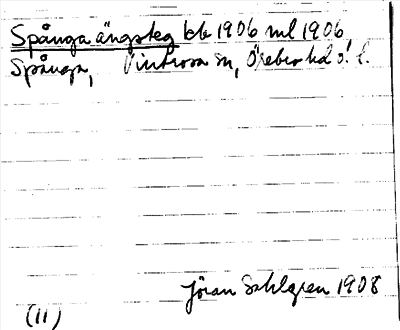 Spånga ängsteg bb 1906 ml 1906
Spånga, Vintrosa sn, Örebro hd ö. l.
Jöran Sahlgren 1908
(11)